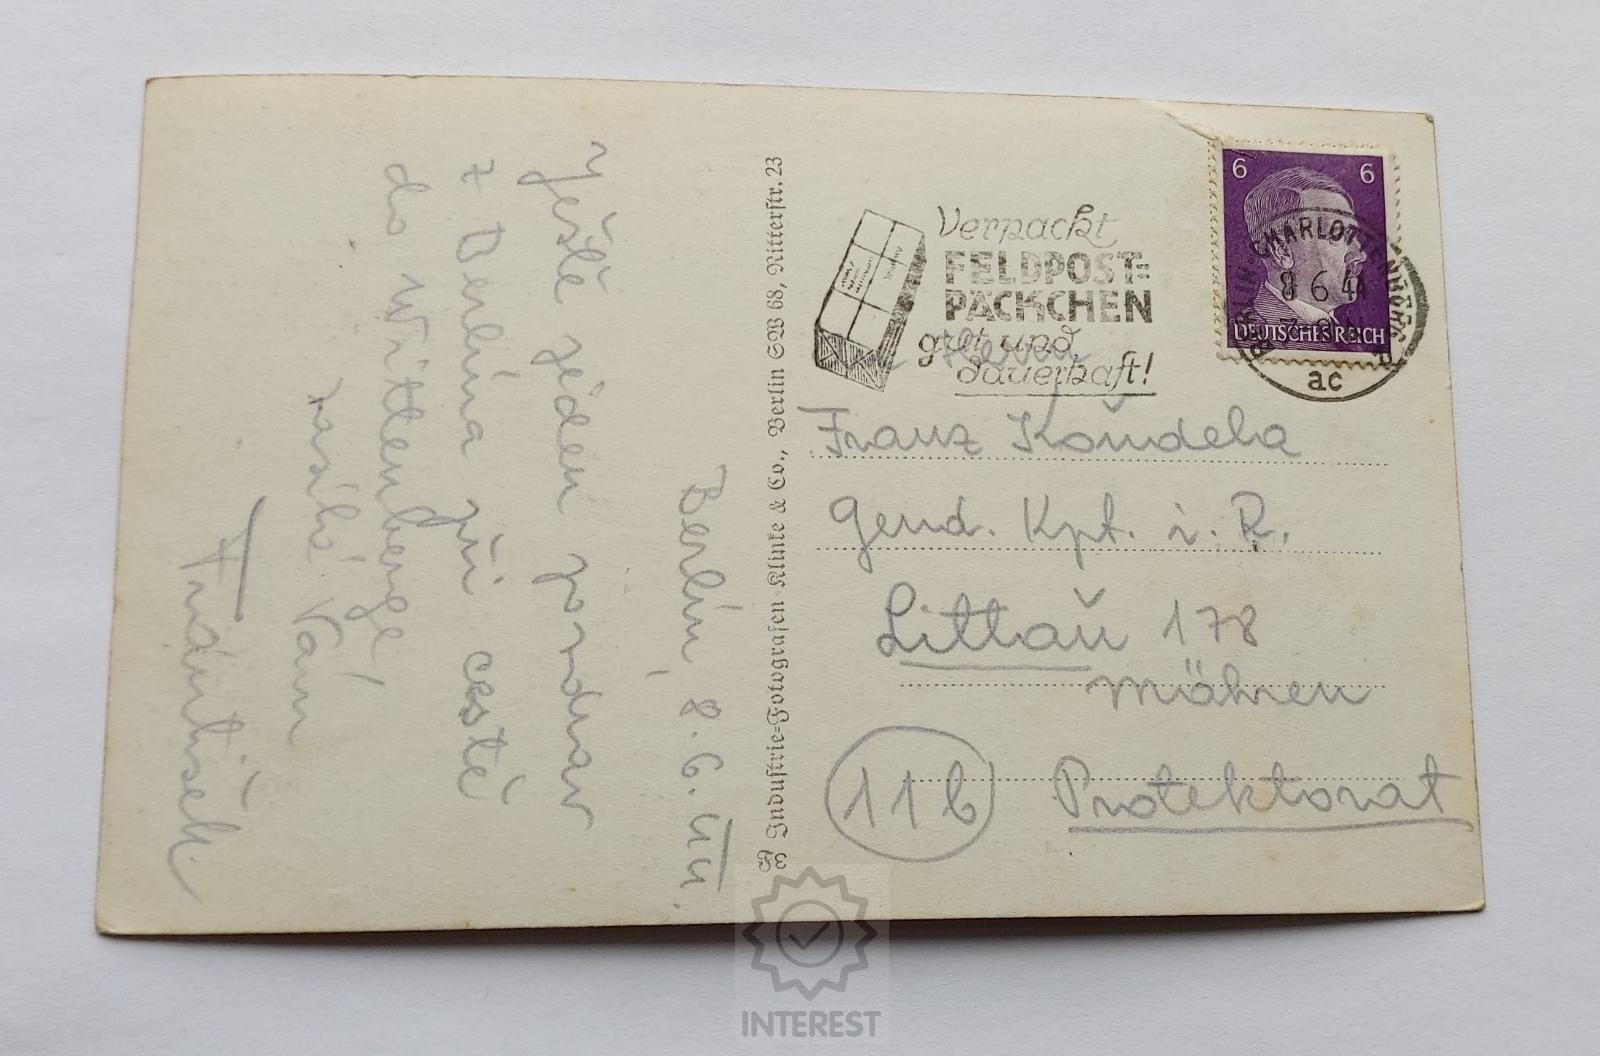 Berlín, 8. 6. 44.
Ještě jeden pozdrav
z Berlína při cestě
do Wittenberge,
zasílá Vám
František.
Industrie=Fotografen Klinke & Co., Berlin SW 68, Ritterstr. 23
Verpackt
FELDPOST=
PÄCKCHEN
gut und
dauerhaft!
6 6
DEUTSCHES REICH
BERLIN-CHARLOTTENBURG
8 6 44
ac
Herrn
Franz Koŭdela
Gend. Kpt. i. R.
Littaŭ 178
Mähren
11b Protektorat
INTEREST